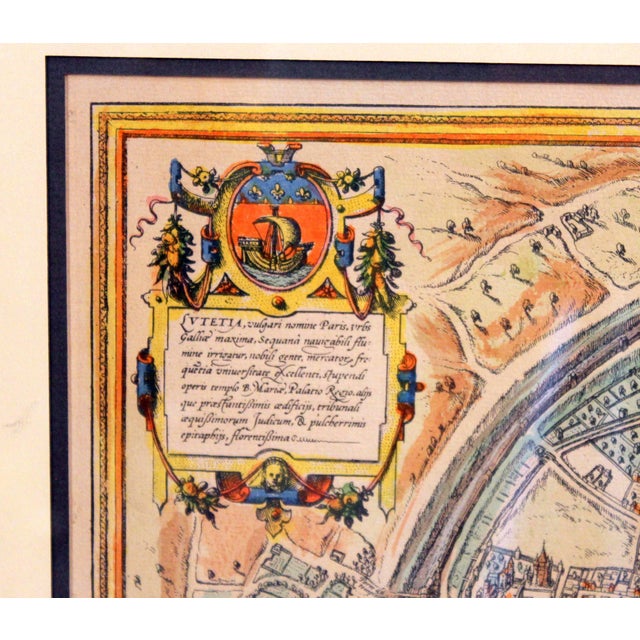 LVTETIA, vulgari nomine Paris, vrbs
Galliæ maxima, Sequanā nauicabili flu
mine irrigatur, nobili gente, mercator, fre
quētia vniuersitate excellenti, stupendi
operis templo B. Mariæ, Palatio Regio, alijs
que præstantissimis ædificijs, tribunali
æquissimorum Judicum, & pulcherrimis
epitaphijs, florentissima